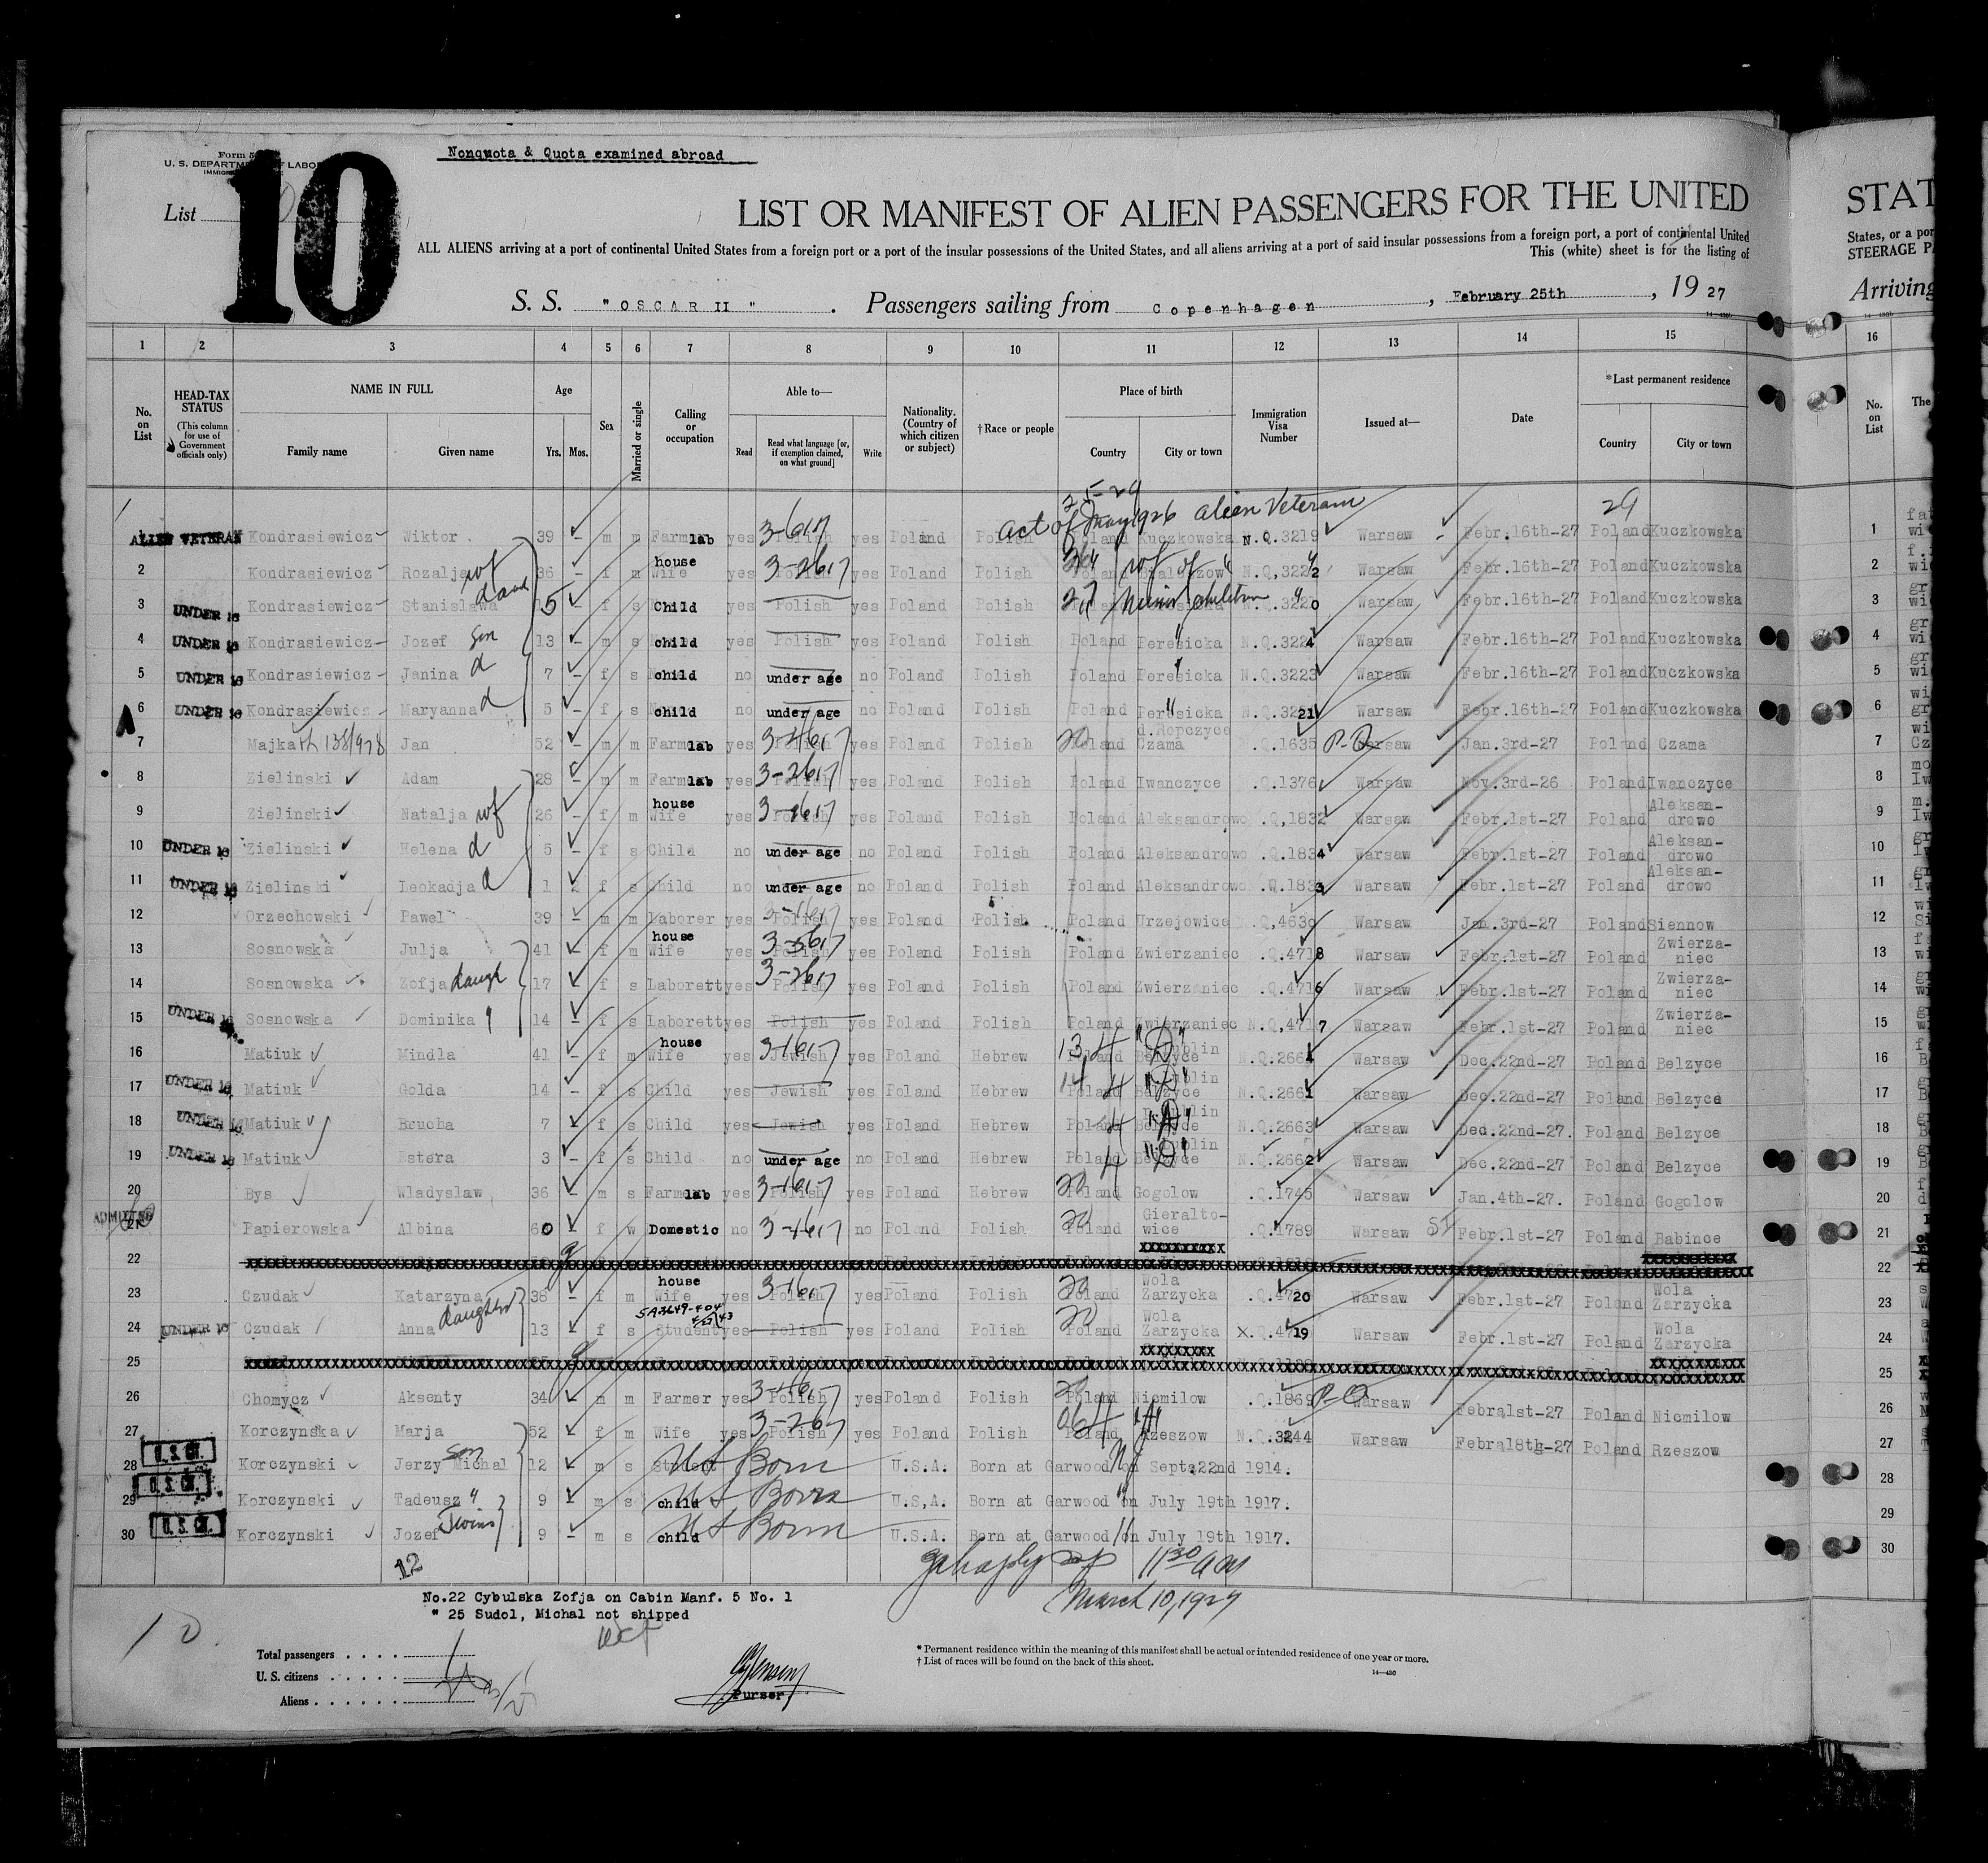 Nonquota & Quota examined abroad
Form 5
U. S. DEPARTM OF LABOR
IMMIG
List
10
LIST OR MANIFEST OF ALIEN PASSENGERS FOR THE UNITED
STAT
ALL ALIENS arriving at a port of continental United States from a foreign port or a port of the insular possessions of the United States, and all aliens arriving at a port of said insular possessions from a foreign port, a port of continental United
States, or a por
This (white) sheet is for the listing of
STEERAGE PA
S. S. "OSCAR II". Passengers sailing from Copenhagen, February 25th, 19 27
Arriving
1 2 3 4 5 6 7 8 9 10 11 12 13 14 15 16
No. on List
HEAD-TAX STATUS (This column for use of Government officials only)
NAME IN FULL
Family name Given name
Age Yrs. Mos.
Sex
Married or single
Calling or occupation
Able to—
Read Read what language [or, if exemption claimed, on what ground] Write
Nationality. (Country of which citizen or subject)
†Race or people
Place of birth
Country City or town
Immigration Visa Number
Issued at—
Date
*Last permanent residence
Country City or town
No. on List
The
25-29
act of May 1926 alien Veteran 29
ALIEN VETERAN Kondrasiewicz Wiktor 39 – m m Farm lab yes Polish 3-617 yes Poland Polish Poland Kuczkowska N.Q.3219 Warsaw Febr.16th-27 Poland Kuczkowska 1
2 Kondrasiewicz Rozalja wf 36 – f m house Wife yes Polish 3-2617 yes Poland Polish Poland wf of N.Q.3222 Warsaw Febr.16th-27 Poland Kuczkowska 2
3 UNDER 16 Kondrasiewicz Stanislawa daud 15 f s Child yes Polish yes Poland Polish Poland Minor children N.Q.3220 Warsaw Febr.16th-27 Poland Kuczkowska 3
4 UNDER 16 Kondrasiewicz Jozef son 13 – m s child yes Polish yes Poland Polish Poland Peresicka N.Q.3224 Warsaw Febr.16th-27 Poland Kuczkowska 4
5 UNDER 16 Kondrasiewicz Janina d 7 – f s child no under age no Poland Polish Poland Peresicka N.Q.3223 Warsaw Febr.16th-27 Poland Kuczkowska 5
6 UNDER 16 Kondrasiewicz Maryanna d 5 – f s child no under age no Poland Polish Poland Peresicka N.Q.3221 Warsaw Febr.16th-27 Poland Kuczkowska 6
7 Majka Jan 52 – m m Farm lab yes Polish yes Poland Polish 20 Poland d.Ropczyce Czama .Q.1635 P-Q Warsaw Jan.3rd-27 Poland Czama 7
8 Zielinski Adam 28 – m m Farm lab yes Polish 3-2617 yes Poland Polish Poland Iwanczyce .Q.1376 Warsaw Nov.3rd-26 Poland Iwanczyce 8
9 Zielinski Natalja wf 26 – f m house Wife yes Polish yes Poland Polish Poland Aleksandrowo .Q,1832 Warsaw Febr.1st-27 Poland Aleksan-drowo 9
10 UNDER 16 Zielinski Helena d 5 – f s Child no under age no Poland Polish Poland Aleksandrowo .Q.1834 Warsaw Febr.1st-27 Poland Aleksan-drowo 10
11 UNDER 16 Zielinski Leokadja d 1 f s Child no under age no Poland Polish Poland Aleksandrowo .Q.1833 Warsaw Febr.1st-27 Poland Aleksan-drowo 11
12 Orzechowski Pawel 39 – m m Laborer yes Polish 3-1617 yes Poland Polish Poland Urzejowice .Q,4630 Warsaw Jan.3rd-27 Poland Siennow 12
13 Sosnowska Julja 41 – f m house Wife yes Polish yes Poland Polish Poland Zwierzaniec .Q.4718 Warsaw Febr.1st-27 Poland Zwierza-niec 13
14 Sosnowska Zofja daugh 17 – f s Laborett yes Polish 3-2617 yes Poland Polish Poland Zwierzaniec .Q.4716 Warsaw Febr.1st-27 Poland Zwierza-niec 14
15 UNDER 16 Sosnowska Dominika " 14 – f s Laborett yes Polish yes Poland Polish Poland Zwierzaniec N.Q,4717 Warsaw Febr.1st-27 Poland Zwierza-niec 15
16 Matiuk Mindla 41 – f m house Wife yes Jewish 3-1617 yes Poland Hebrew Poland Belzyce N.Q.2664 Warsaw Dec.22nd-27 Poland Belzyce 16
17 UNDER 16 Matiuk Golda 14 – f s Child yes Jewish yes Poland Hebrew Poland Belzyce N.Q.2661 Warsaw Dec.22nd-27 Poland Belzyce 17
18 UNDER 16 Matiuk Brucha 7 f s Child yes Jewish yes Poland Hebrew Poland Belzyce N.Q.2663 Warsaw Dec.22nd-27. Poland Belzyce 18
19 UNDER 16 Matiuk Estera 3 – f s Child no under age no Poland Hebrew Poland Belzyce N.Q.2662 Warsaw Dec.22nd-27 Poland Belzyce 19
20 Bys Wladyslaw 36 – m s Farm lab yes Polish 3-1617 yes Poland Hebrew 20 Poland Gogolow .Q.1745 Warsaw Jan.4th-27. Poland Gogolow 20
ADMITTED 21 Papierowska Albina 60 f w Domestic no 3-1617 no Poland Polish 20 Poland Gieralto-wice .Q.1789 Warsaw SI Febr.1st-27 Poland Babinoe 21
22
23 Czudak Katarzyna 38 – f m house Wife yes Polish 3-1617 yes Poland Polish 20 Poland Wola Zarzycka .Q.4720 Warsaw Febr.1st-27 Poland Wola Zarzycka 23
24 UNDER 16 Czudak Anna daughter 13 f s Student yes Polish yes Poland Polish 20 Poland Wola Zarzycka X.Q.4719 Warsaw Febr.1st-27 Poland Wola Zarzycka 24
25
26 Chomycz Aksenty 34 m m Farmer yes Polish 3-1617 yes Poland Polish 20 Poland Nicmilow .Q.1869 P-Q Warsaw Febra1st-27 Poland Nicmilow 26
27 Korczynska Marja 52 – f m Wife yes Polish 3-267 yes Poland Polish Poland Rzeszow N.Q.3244 Warsaw Febra18th-27 Poland Rzeszow 27
28 U.S. Cit. Korczynski Jerzy Michal son 12 m s Student US Born U.S.A. Born at Garwood NJ on Septa22nd 1914. 28
29 U.S. Cit. Korczynski Tadeusz " 9 m s child US Born U.S,A. Born at Garwood " on July 19th 1917. 29
30 U.S. Cit. Korczynski Jozef Twins 9 – m s child US Born U.S.A. Born at Garwood " on July 19th 1917. 30
12
11 30 am
March 10, 1927
No.22 Cybulska Zofja on Cabin Manf. 5 No. 1
" 25 Sudol, Michal not shipped
10.
Total passengers
U. S. citizens
Aliens
Purser.
* Permanent residence within the meaning of this manifest shall be actual or intended residence of one year or more.
† List of races will be found on the back of this sheet.
14—430